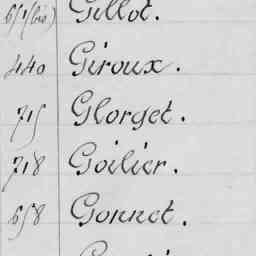 651(bis) Gillot.
440 Giroux.
715 Glorget.
718 Goilier.
658 Gonnet.